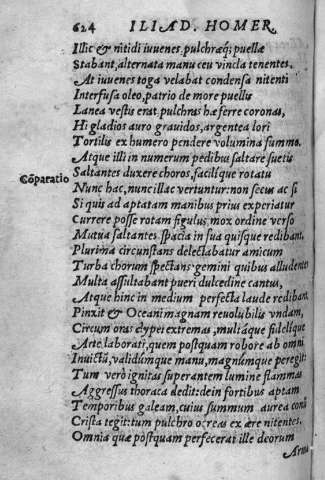 624 ILIAD. HOMER.
Illic & nitidi iuuenes, pulchræq; puellæ
Stabant, alternata manu ceu vincla tenentes.
At iuuenes toga velabat condensa nitenti
Interfusa oleo, patrio de more puellis
Lanea vestis erat, pulchras hæ ferre coronas,
Hi gladios auro grauidos, argentea lori
Tortilis ex humero pendere volumina summo.
Atque illi in numerum pedibus saltare suetis
Cōparatio
Saltantes duxere choros, facilique rotatu
Nunc hac, nunc illac vertuntur: non secus ac si
Si quis ad aptatam manibus prius experiatur
Currere posse rotam figulus, mox ordine verso
Mutua saltantes spacia in sua quisque redibant,
Plurima circunstans delectabatur amicum
Turba chorum spectans: gemini quibus alludentes
Multa assultabant pueri dulcedine cantus,
Atque hinc in medium perfecta laude redibant
Pinxit & Oceani magnam reuolubilis vndam,
Circum oras clypei extremas, multáque fidelique
Arte laborati, quem postquam robore ab omni
Inuictū, validúmque manu, magnúmque peregit:
Tum verò ignitas superantem lumine flammas
Aggressus thoraca dedit: dein fortibus aptam
Temporibus galeam, cuius summum aurea conū
Crista tegit: tum pulchro ocreas ex ære nitentes.
Omnia quæ postquam perfecerat ille deorum
Arma